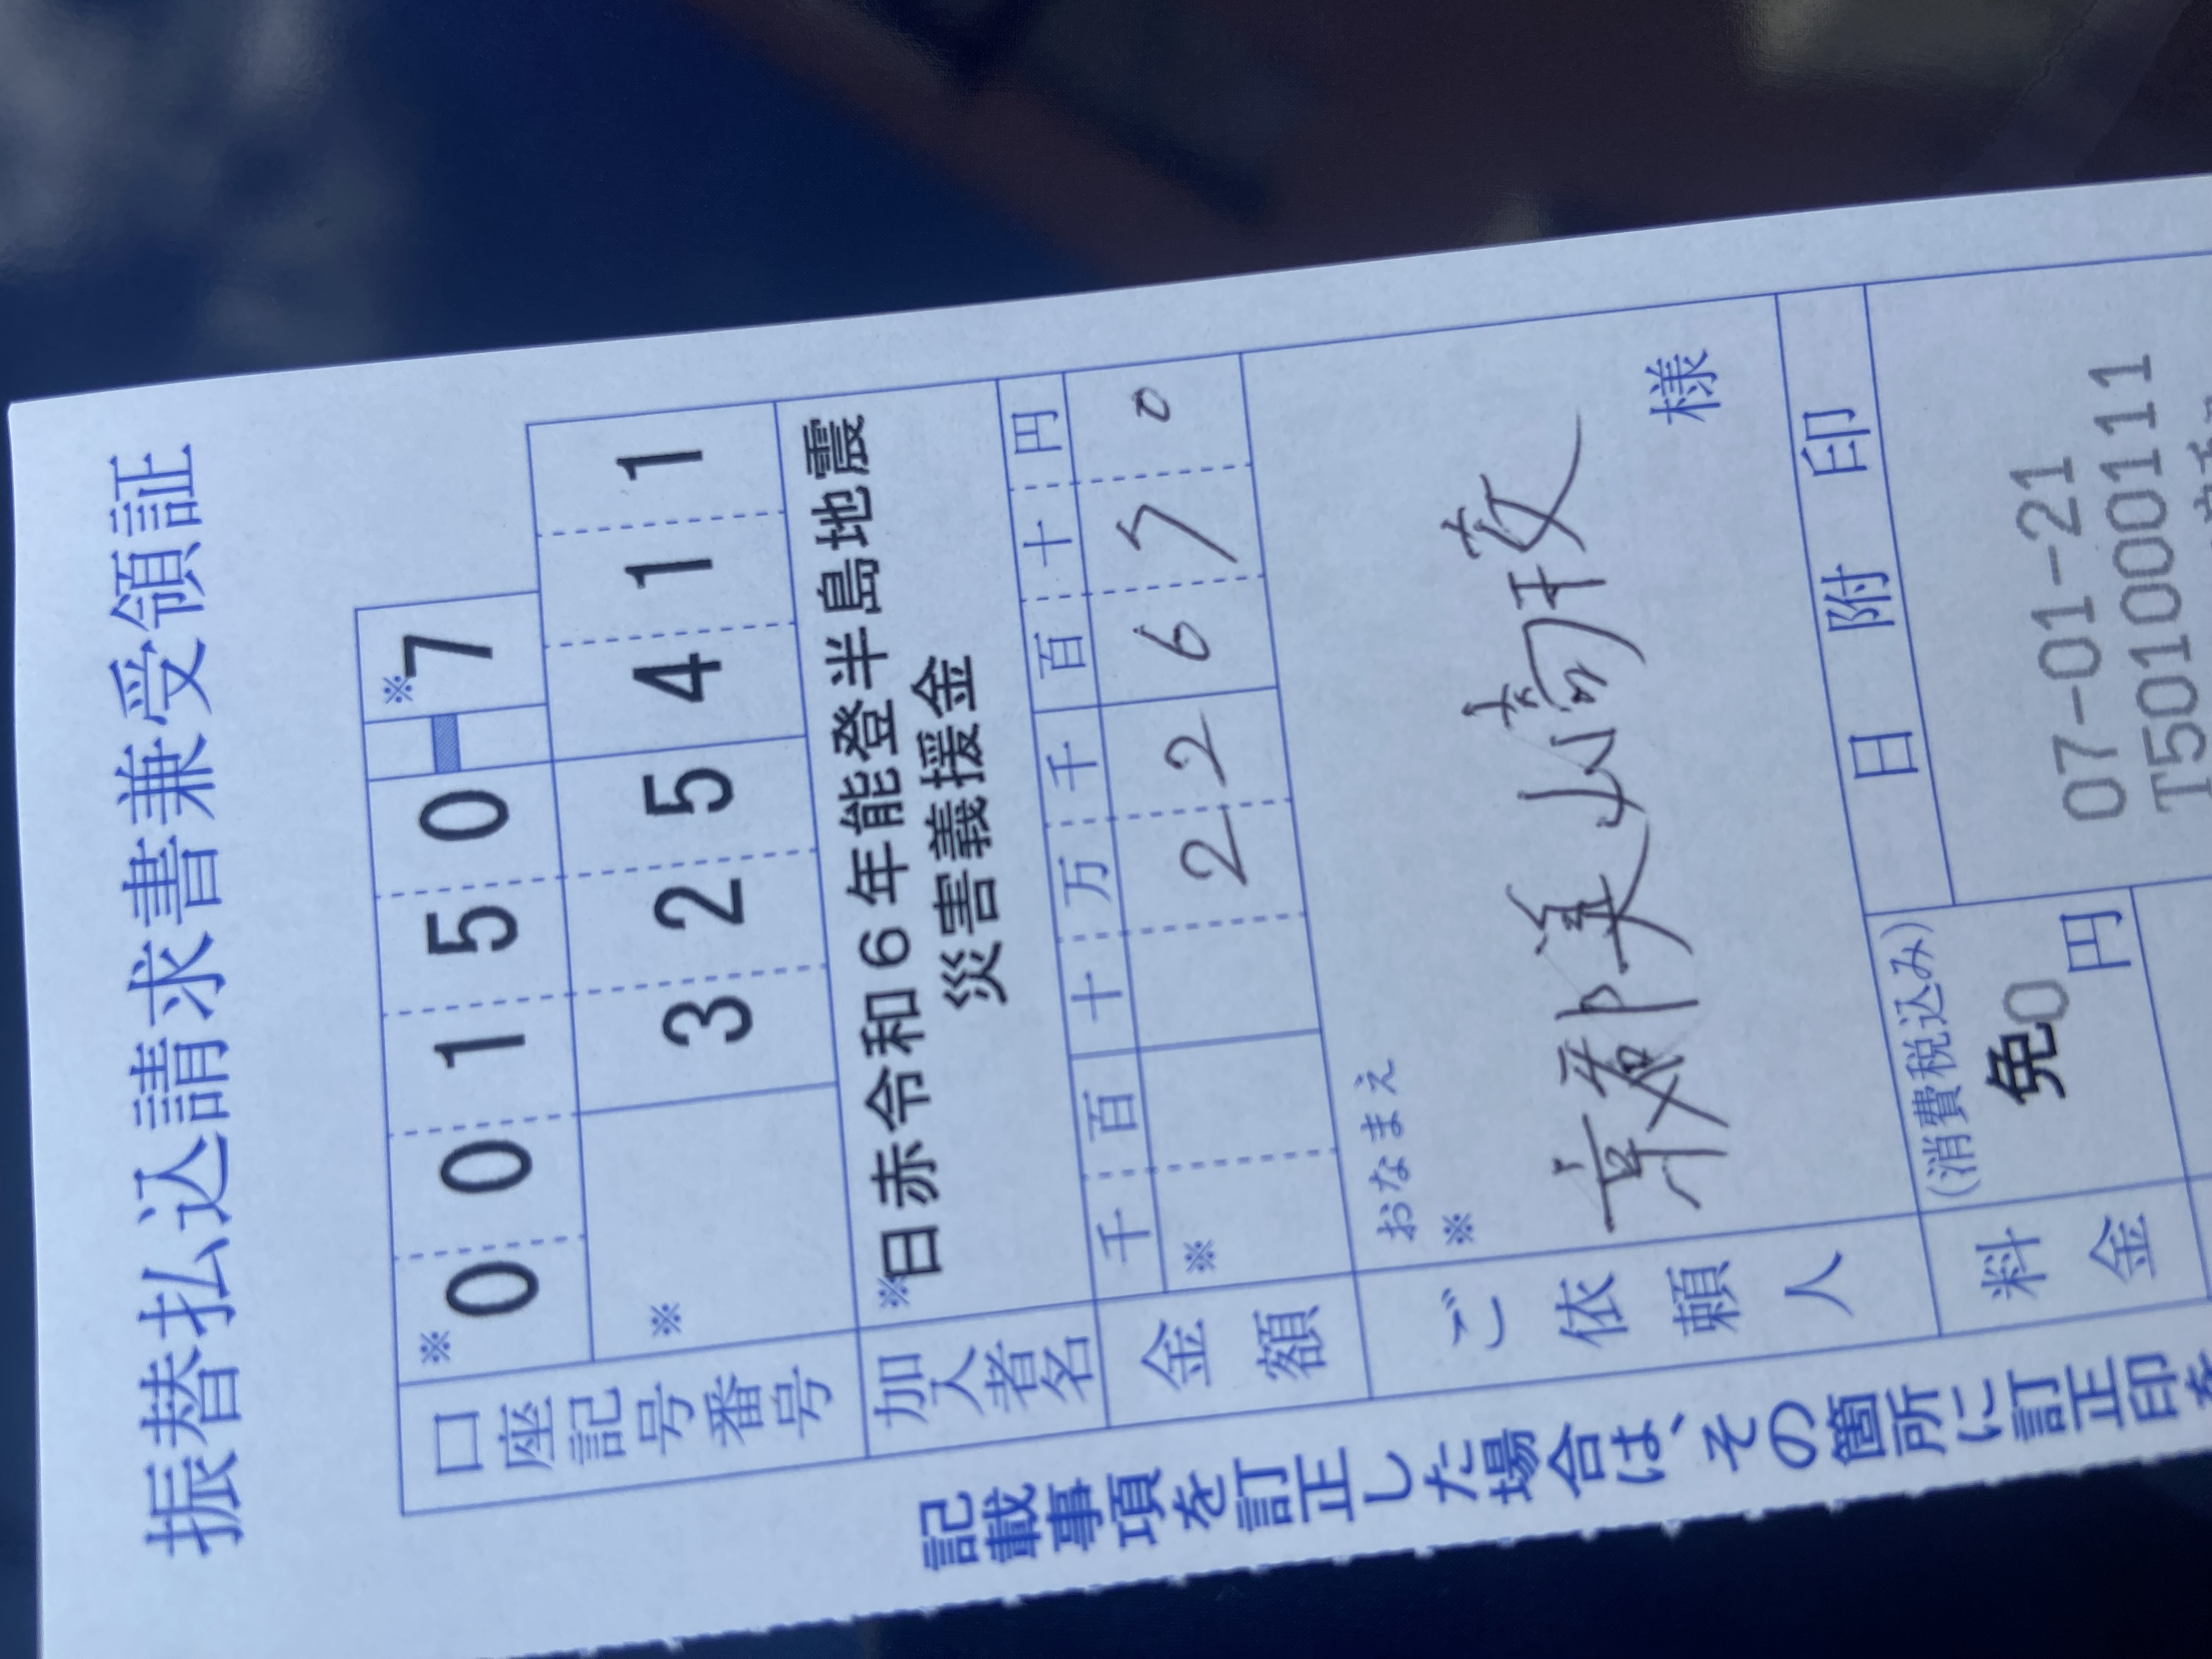 振替払込請求書兼受領証
口座記号番号
※
00150
※
7
※
325411
加入者名
※日赤令和6年能登半島地震
災害義援金
金額
千百十万千百十円
※
22670
ご依頼人
おなまえ
※
様
料金
(消費税込み)
免0円
日附印
07-01-21
T501000111
記載事項を訂正した場合は、その箇所に訂正印を